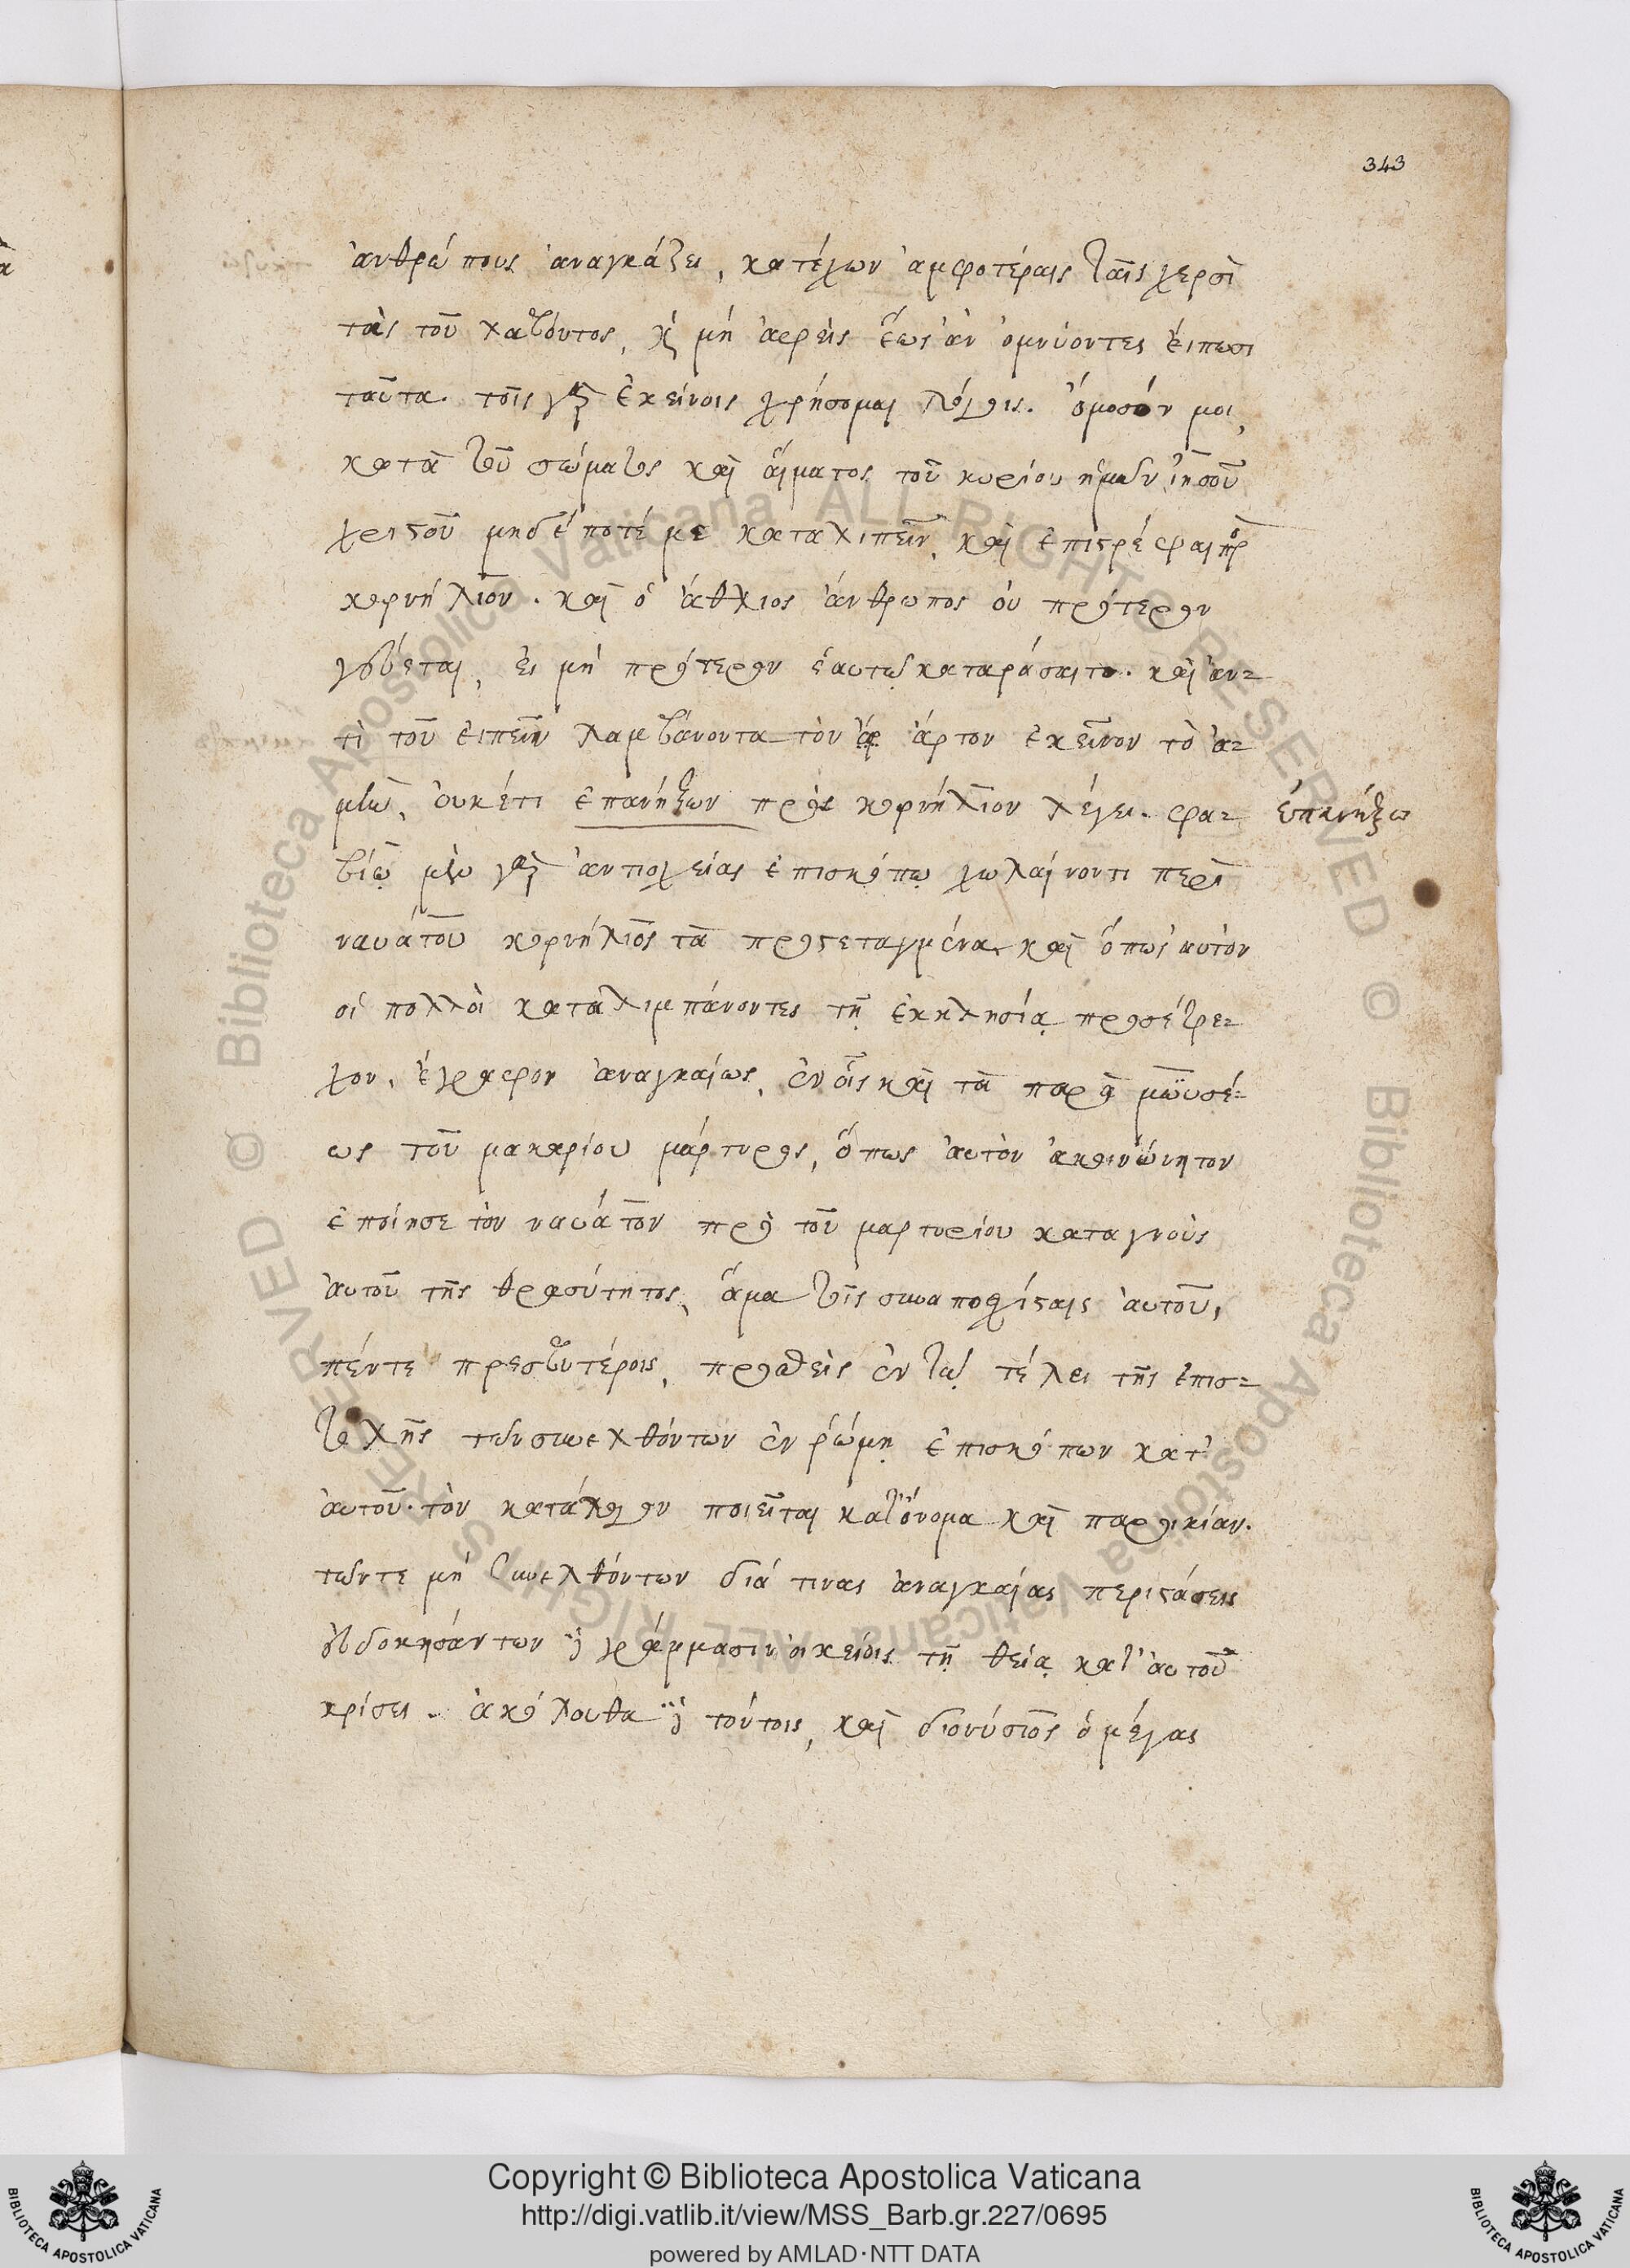 343
ἀνθρώπους ἀναγκάζει, κατέχων ἀμφοτέραις ταῖς χερσὶ
τὰς τοῦ λαβόντος, καὶ μὴ ἀφεὶς ἕως ἂν ὀμνύοντες εἴπωσι
ταῦτα. τοῖς γὰρ ἐκείνοις χρήσομαι λόγοις. ὄμοσόν μοι,
κατὰ τοῦ σώματος καὶ αἵματος τοῦ κυρίου ἡμῶν ἰησοῦ
χριστοῦ μηδέποτέ με καταλιπεῖν, καὶ ἐπιστρέψαι πρὸς
κορνήλιον. καὶ ὁ ἄθλιος ἄνθρωπος οὐ πρότερον
γεύεται, εἰ μὴ πρότερον ἑαυτῷ καταράσαιτο. καὶ ἀν=
τὶ τοῦ εἰπεῖν λαμβάνοντα τὸν ἄρτον ἐκεῖνον τὸ ἀ=
μὴν, οὐκέτι ἐπανήξων πρὸς κορνήλιον λέγει. φα=
ἐπανήξω
βίῳ μὲν γὰρ ἀντιοχείας ἐπισκόπῳ χωλαίνοντι περὶ
ναυάτου κορνήλιος τὰ προστεταγμένα καὶ ὅπως αὐτὸν
οἱ πολλοὶ καταλιμπάνοντες τῇ ἐκκλησίᾳ προσέτρε=
χον, ἔγραφον ἀναγκαίως, ἐν οἷς καὶ τὰ παρὰ μωϋσέ=
ως τοῦ μακαρίου μάρτυρος, ὅπως αὐτὸν ἀκοινώνητον
ἐποίησε τὸν ναυάτον πρὸ τοῦ μαρτυρίου καταγνοὺς
αὐτοῦ τῆς θρασύτητος, ἅμα τοῖς συναποσχίσταις αὐτοῦ,
πέντε πρεσβυτέροις, προσθεὶς ἐν τῷ τέλει τῆς ἐπισ=
τολῆς τῶν συνελθόντων ἐν ῥώμῃ ἐπισκόπων κατ'
αὐτοῦ. τὸν κατάλογον ποιεῖται κατ' ὄνομα καὶ παροικίαν.
τῶν τε μὴ συνελθόντων διά τινας ἀναγκαίας περιστάσεις
εὐδοκησάντων δὲ γράμμασιν οἰκείοις τῇ θείᾳ κατ' αὐτοῦ
κρίσει. ἀκόλουθα δὲ τούτοις, καὶ διονύσιος ὁ μέγας
Copyright © Biblioteca Apostolica Vaticana
http://digi.vatlib.it/view/MSS_Barb.gr.227/0695
powered by AMLAD·NTT DATA
BIBLIOTECA APOSTOLICA VATICANA
BIBLIOTECA APOSTOLICA VATICANA
© Biblioteca Apostolica Vaticana ALL RIGHTS RESERVED
© Biblioteca Apostolica Vaticana ALL RIGHTS RESERVED